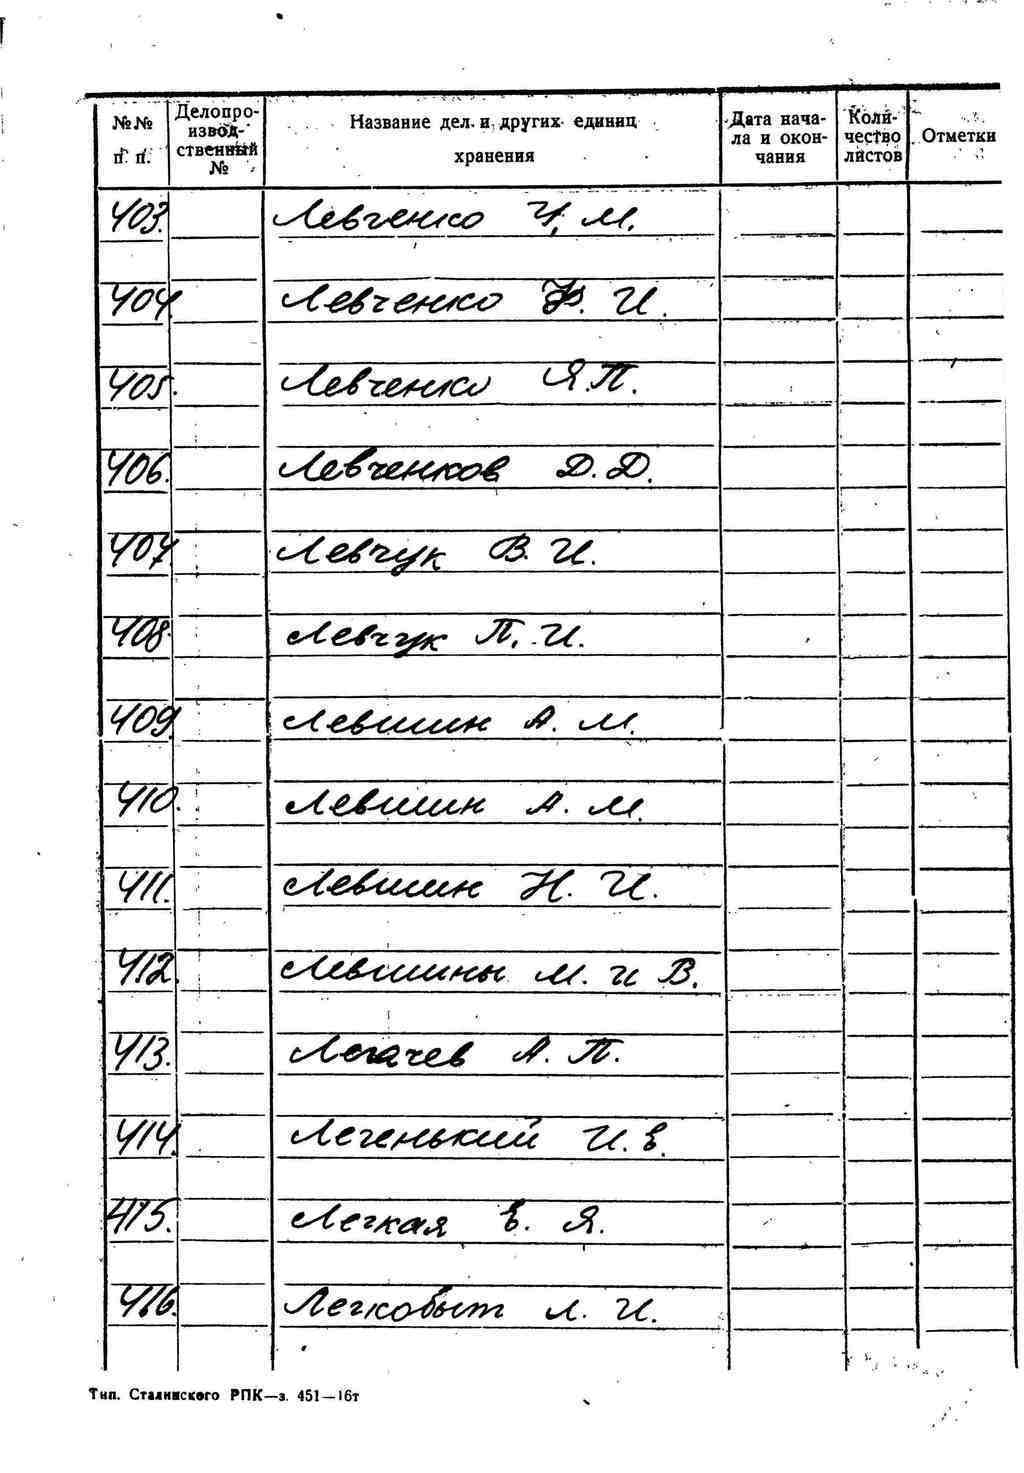 №№ п. п.
Делопроизводственный №
Название дел и других единиц хранения
Дата начала и окончания
Количество листов
Отметки
403. Левченко И. М.
404. Левченко Ф. И.
405. Левченко Я. П.
406. Левченков Д. Д.
407 Левчук В. И.
408. Левчук П. И.
409. Левшин А. М.
410. Левшин А. М.
411. Левшин Н. И.
412. Левшины М. и В.
413. Легачев А. П.
414. Легенький И. Е.
415. Легкая Е. Я.
416. Легкобыт Л. И.
Тип. Сталинского РПК—з. 451—16т